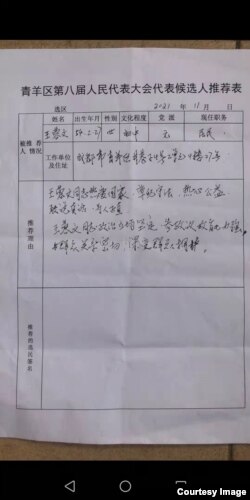 青羊区第八届人民代表大会代表候选人推荐表
选区 2021 年 11 月 日
被推荐人情况
姓名 出生年月 性别 文化程度 党派 现任职务
王蓉文 初中 无 居民
工作单位及住址
成都市青羊区
推荐理由
王蓉文同志热爱国家，遵纪守法，热心公益
王蓉文同志政治立场坚定，参政议政能力强，
与群众关系密切，深受群众拥护。
推荐的选民签名
Courtesy Image